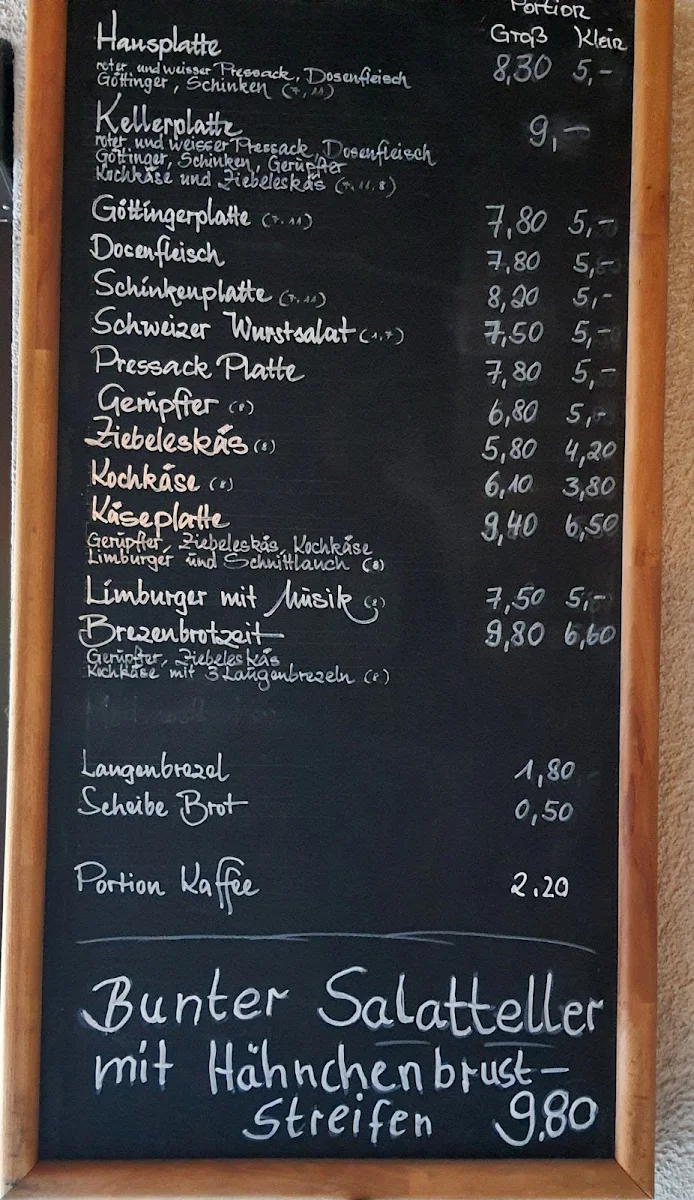 Portion
Groß Klein
Hausplatte 8,30 5,-
roter und weisser Pressack, Dosenfleisch
Göttinger, Schinken (7,11)
Kellerplatte 9,-
roter und weisser Pressack, Dosenfleisch
Göttinger, Schinken, Gerupfter
Kochkäse und Ziebeleskäs (7,11,8)
Göttingerplatte (7,11) 7,80 5,-
Dosenfleisch 7,80 5,-
Schinkenplatte (7,11) 8,20 5,-
Schweizer Wurstsalat (1,7) 7,50 5,-
Pressack Platte 7,80 5,-
Gerupfter (8) 6,80 5,-
Ziebeleskäs (8) 5,80 4,20
Kochkäse (8) 6,10 3,80
Käseplatte 9,40 6,50
Gerupfter, Ziebeleskäs, Kochkäse
Limburger und Schnittlauch (8)
Limburger mit Musik (8) 7,50 5,-
Brezenbrotzeit 9,80 6,60
Gerupfter, Ziebeleskäs
Kochkäse mit 3 Laugenbrezeln (8)
Laugenbrezel 1,80
Scheibe Brot 0,50
Portion Kaffee 2.20
Bunter Salatteller
mit Hähnchenbrust-
Streifen 9.80